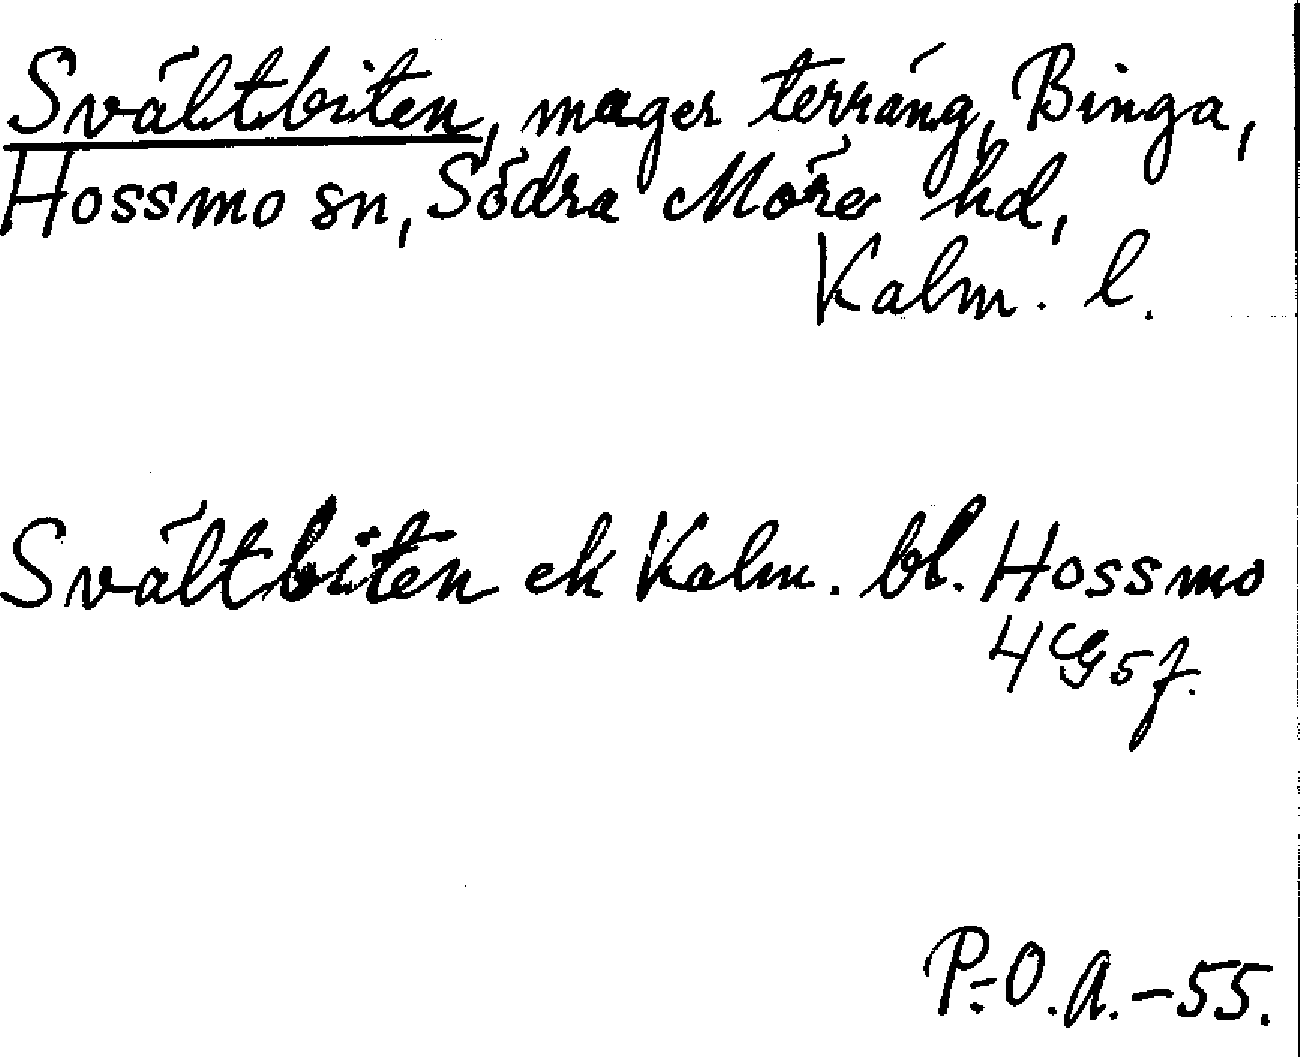 Svältbiten, mager terräng, Binga,
Hossmo sn, Södra Möre hd,
Kalm. l.
Svältbiten ek Kalm. bl. Hossmo
4 G 5 f.
P.-O. A. - 55.